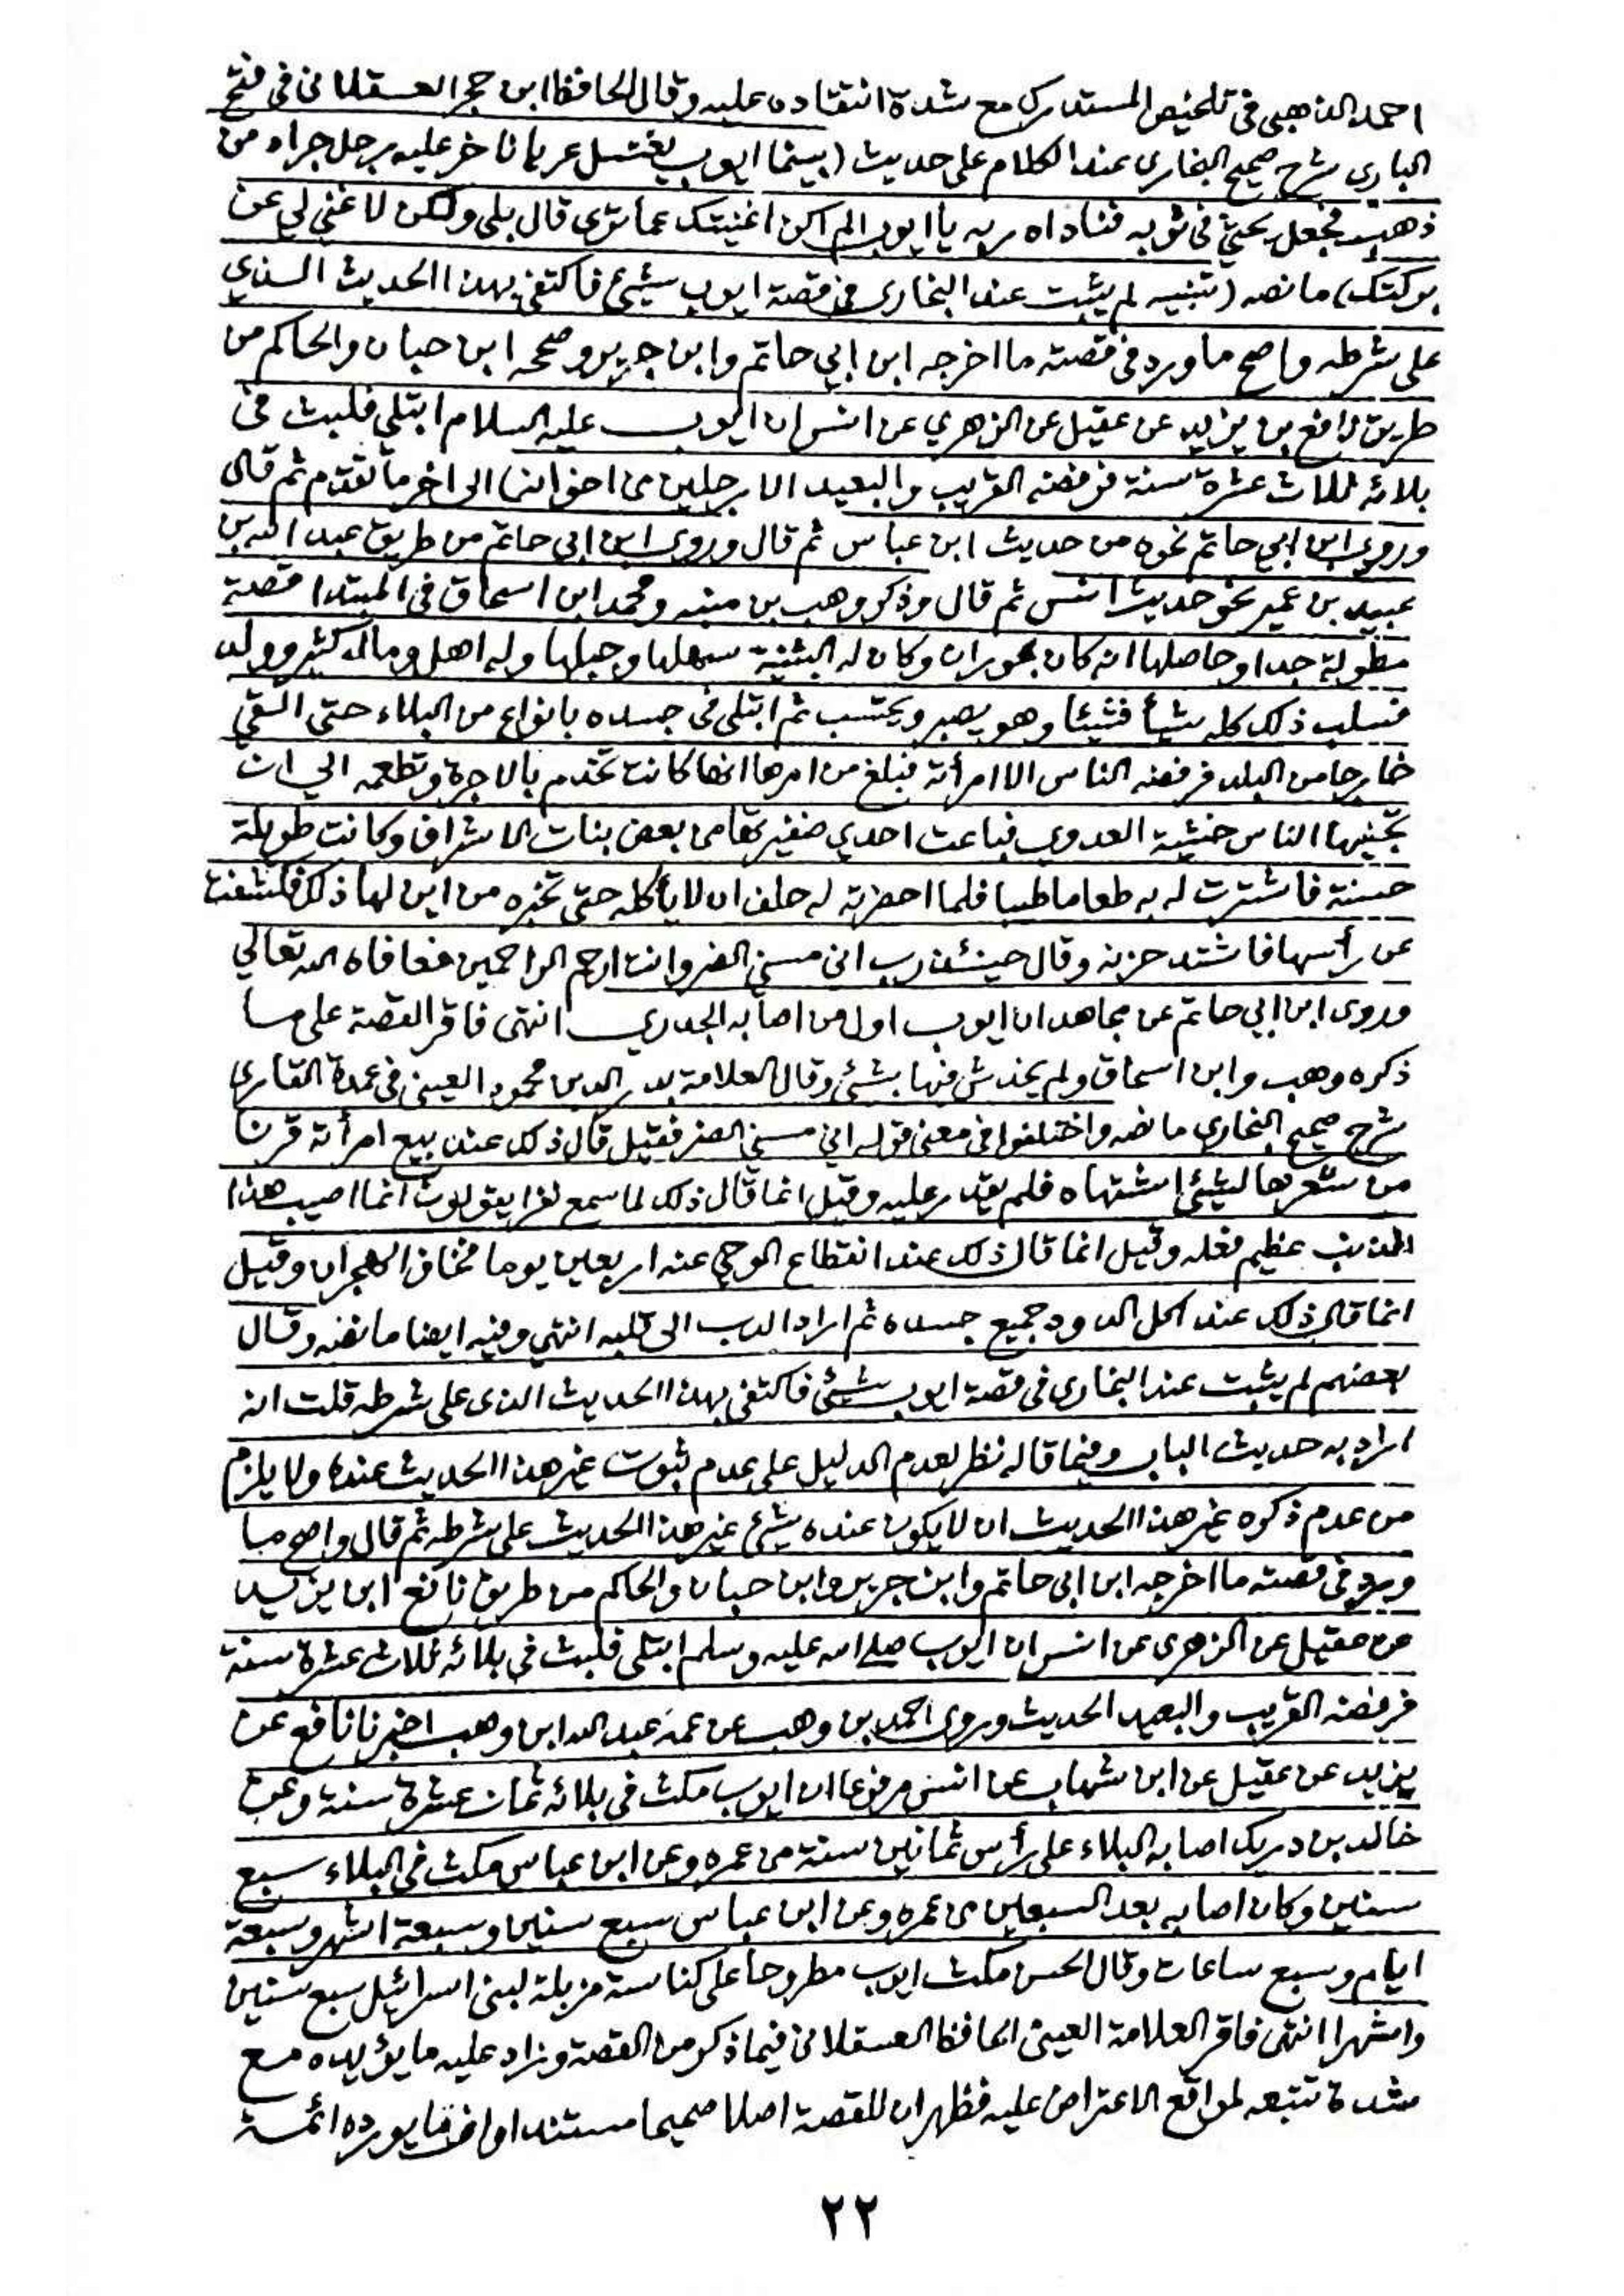 احمد الذهبي في تلخيص المستدرك مع شدة انتقاده عليه وقال الحافظ ابن حجر العسقلاني في فتح
الباري شرح صحيح البخاري عند الكلام على حديث (بينما ايوب يغتسل عريانا خر عليه رجل جراد من
ذهب فجعل يحثي في ثوبه فناداه ربه يا ايوب الم اكن اغنيتك عما ترى قال بلى ولكن لا غنى لي عن
بركتك) ما نصه (تنبيه لم يثبت عند البخاري في قصة ايوب شيئ فاكتفى بهذا الحديث الذي
على شرطه واصح ما ورد في قصته ما اخرجه ابن ابي حاتم وابن جرير وصححه ابن حبان والحاكم من
طريق نافع بن يزيد عن عقيل عن الزهري عن انس ان ايوب عليه السلام ابتلي فلبث في
بلائه ثلاث عشرة سنة فرفضه القريب والبعيد الا رجلين من اخوانه) الى اخر ما تقدم ثم قال
وروى ابن ابي حاتم نحوه من حديث ابن عباس ثم قال وروى ابن ابي حاتم من طريق عبد الله بن
عبيد بن عمير نحو حديث انس ثم قال وذكر وهب بن منبه ومحمد ابن اسحاق في المبتدا قصة
مطولة جدا وحاصلها انه كان بحوران وكان له البثنية سهلها وجبلها وله اهل ومال كثير وولد
فسلب ذلك كله شيأ فشيئا وهو يصبر ويحتسب ثم ابتلي في جسده بانواع من البلاء حتى القي
خارجا من البلد فرفضه الناس الا امرأته فبلغ من امرها انها كانت تخدم بالاجرة وتطعمه الى ان
تجنبها الناس خشية العدوى فباعت احدي ضفيرتها من بعض بنات الاشراف وكانت طويلة
حسنة فاشترت له به طعاما طيبا فلما احضرته له حلف ان لا يأكله حتى تخبره من اين لها ذلك فكشفت
عن رأسها فاشتد حزنه وقال حينئذ رب اني مسني الضر وانت ارحم الراحمين فعافاه الله تعالى
وروى ابن ابي حاتم عن مجاهد ان ايوب اول من اصابه الجدري انتهى فاقر القصة على ما
ذكره وهب وابن اسحاق ولم يخدش فيها بشئ وقال العلامة بدر الدين محمود العيني في عمدة القاري
شرح صحيح البخاري ما نصه واختلفوا في معنى قوله اني مسني الضر فقيل قال ذلك عند بيع امرأته قرنا
من شعرها لشيئ اشتهاه فلم يقدر عليه وقيل انما قال ذلك لما سمع نفرا يقولون انما اصيب هذا
الذنب عظيم فعله وقيل انما قال ذلك عند انقطاع الوحي عنه اربعين يوما فخاف الهجران وقيل
انما قال ذلك عند اكل الدود جميع جسده ثم اراد الدب الى قلبه انتهي وفيه ايضا ما نصه وقال
بعضهم لم يثبت عند البخاري في قصة ايوب شيئ فاكتفى بهذا الحديث الذي على شرطه قلت انه
اراد به حديث الباب وفيما قاله نظر لعدم الدليل على عدم ثبوت غير هذا الحديث عنده ولا يلزم
من عدم ذكره غير هذا الحديث ان لا يكون عنده شيئ غير هذا الحديث على شرطه ثم قال واصح ما
ورد في قصته ما اخرجه ابن ابي حاتم وابن جرير وابن حبان والحاكم من طريق نافع ابن يزيد
عن عقيل عن الزهري عن انس ان ايوب صلى الله عليه وسلم ابتلى فلبث في بلائه ثلاث عشرة سنة
فرفضه القريب والبعيد الحديث وروى احمد بن وهب عن عمه عبد الله ابن وهب اخبرنا نافع عن
يزيد عن عقيل عن ابن شهاب عن انس مرفوعا ان ايوب مكث في بلائه ثمان عشرة سنة وعن
خالد بن دريك اصابه البلاء على رأس ثمانين سنة من عمره وعن ابن عباس مكث في البلاء سبع
سنين وكان اصابه بعد السبعين من عمره وعن ابن عباس سبع سنين وسبعة اشهر وسبعة
ايام وسبع ساعات وقال الحسن مكث ايوب مطروحا على كناسة مزبلة لبني اسرائيل سبع سنين
واشهرا انتهى فاقر العلامة العيني الحافظ العسقلاني فيما ذكر من القصة وزاد عليه ما يؤيده مع
شدة تتبعه لمواقع الاعتراض عليه فظهر ان للقصة اصلا صحيحا مستندا يورده ائمة
٢٢